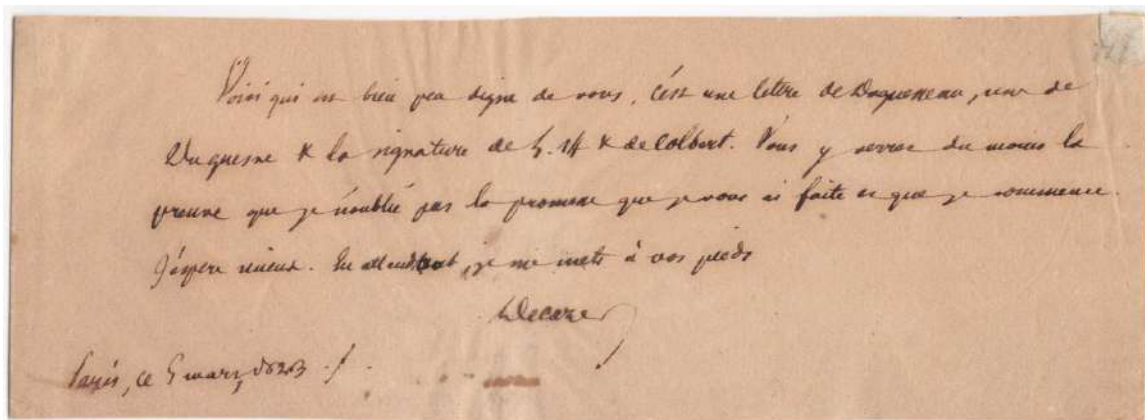 Voici qui est bien peu digne de vous, c'est une lettre de Daguesseau, une de
Duquesne & la signature de L. 14 & de Colbert. Vous y verrez du moins la
preuve que je n'oublie pas la promesse que je vous ai faite et que je commence.
J'espère mieux. En attendant, je me mets à vos pieds
Decazes
Paris, ce 5 mars, 1823